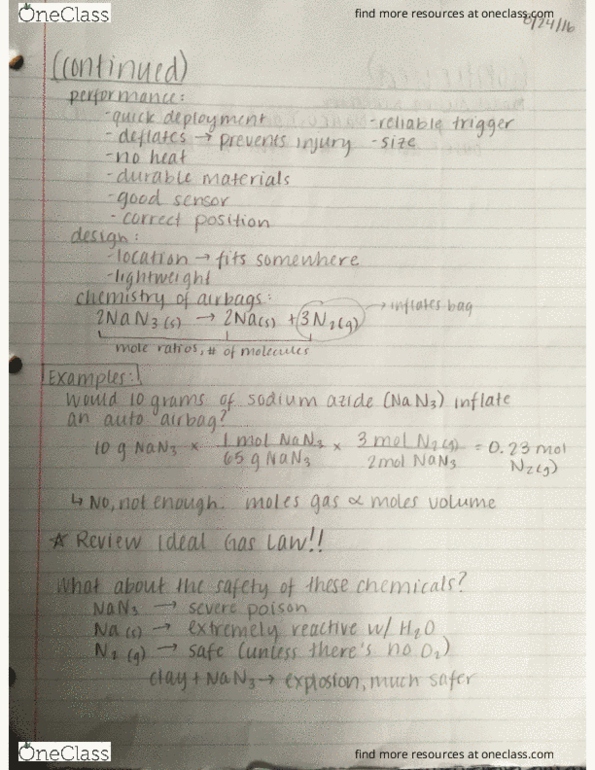 OneClass
find more resources at oneclass.com
/24/16
(continued)
performance:
-quick deployment -reliable trigger
- deflates → prevents injury -size
-no heat
-durable materials
-good sensor
- correct position
design:
-location → fits somewhere
-lightweight
chemistry of airbags:
2NaN₃(s) → 2Na(s) + 3N₂(g) → inflates bag
mole ratios, # of molecules
Examples:
Would 10 grams of sodium azide (NaN₃) inflate
an auto airbag?
10 g NaN₃ × 1 mol NaN₃ / 65 g NaN₃ × 3 mol N₂(g) / 2 mol NaN₃ = 0.23 mol N₂(g)
↳ No, not enough. moles gas ∝ moles volume
☆ Review Ideal Gas Law!!
What about the safety of these chemicals?
NaN₃ → severe poison
Na(s) → extremely reactive w/ H₂O
N₂(g) → safe (unless there's no O₂)
clay + NaN₃ → explosion, much safer
OneClass
find more resources at oneclass.com